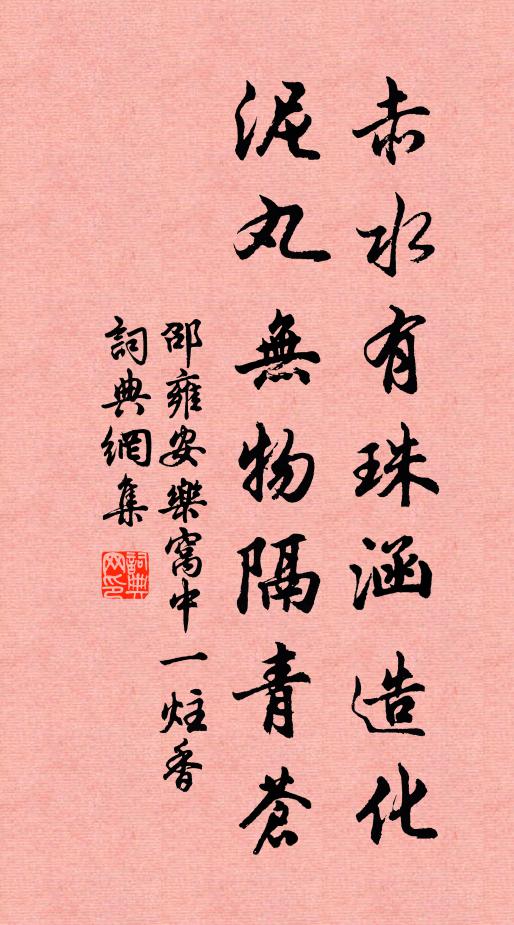 赤水有珠涵造化
泥丸無物隔青蒼
邵雍安樂窩中一炷香
詞典網集
詞典网印